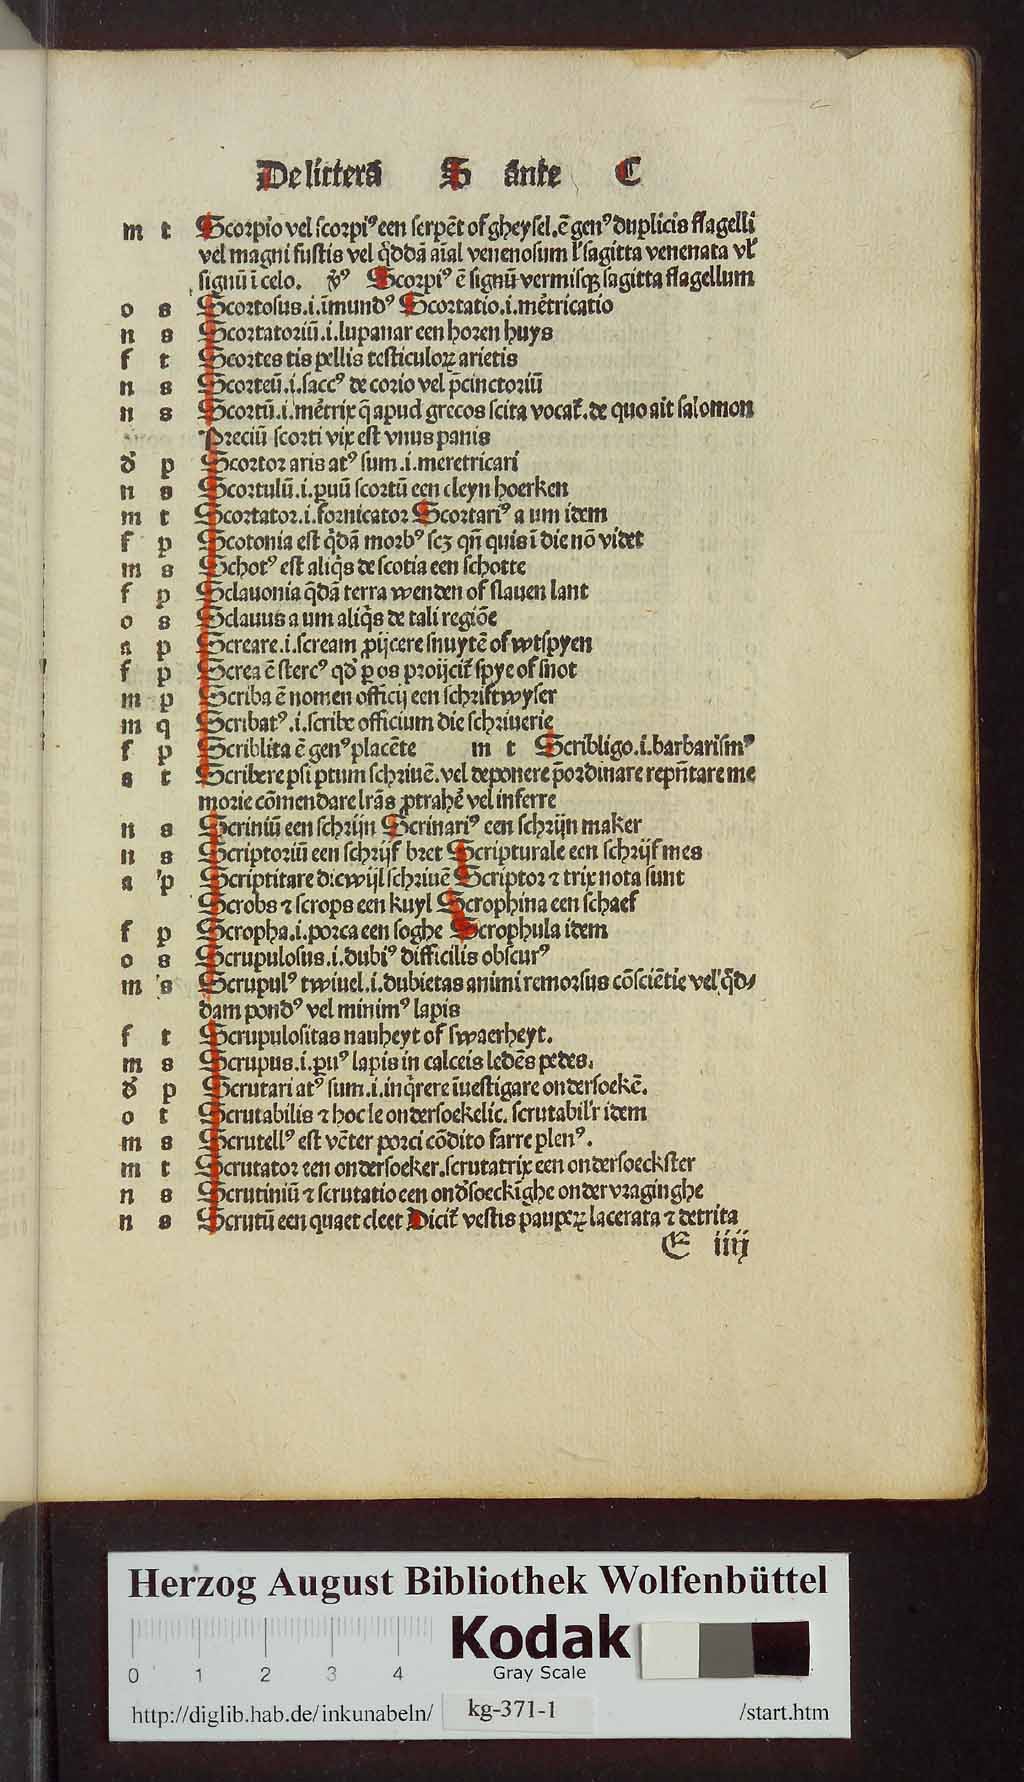 De litterā S āntе C
m t Scorpio vel scorpiꝰ een serpēt of gheysel.ē genꝰ duplicis flagelli
vel magni fustis vel q̄ddā aīal venenosum l' sagitta venenata vl'
signū ī celo. v̄ꝰ Scorpiꝰ ē signū vermisqꝫ sagitta flagellum
o s Scortosus.i.īmundꝰ Scortatio.i.me͛tricatio
n s Scortatoriū.i.lupanar een horen huys
f t Scortes tis pellis testiculoꝝ arietis
n s Scorteū.i.saccꝰ de corio vel p̄cinctoriū
n s Scortū.i.me͛trix q̄ apud grecos scita vocat͛.de quo ait salomon
Preciū scorti vix est vnus panis
d͛ p Scortor aris atꝰ sum.i.meretricari
n s Scortulū.i.ꝑuū scortū een cleyn hoerken
m t Scortator.i.fornicator Scortariꝰ a um idem
f p Scotonia est q̄dā morbꝰ scꝫ qn̄ quis ī die nō videt
m s Schotꝰ est aliq̄s de scotia een schotte
f p Sclauonia q̄dā terra wenden of slauen lant
o s Sclauus a um aliq̄s de tali regiōe
a p Screare.i.scream ꝓijcere snuytē of wtspyen
f p Screa ē stercꝰ qd͛ ꝑ os proijcit͛ spye of snot
m p Scriba ē nomen officij een schriftwyser
m q Scribatꝰ.i.scribe officium die schriuerie
f p Scriblita ē genꝰ placēte m t Scribligo.i.barbarismꝰ
s t Scribere psi ptum schriuē.vel deponere p̄ordinare repn̄tare me
morie cōmendare lrās ꝓtrahe͛ vel inferre
n s Scriniū een schrijn Scrinariꝰ een schrijn maker
n s Scriptoriū een schrijf bret Scripturale een schrijf mes
a p Scriptitare dicwijl schriuē Scriptor ⁊ trix nota sunt
Scrobs ⁊ scrops een kuyl Scrophina een schaef
f p Scropha.i.porca een soghe Scrophula idem
o s Scrupulosus.i.dubiꝰ difficilis obscurꝰ
m s Scrupulꝰ twiuel.i.dubietas animi remorsus cōsciētie vel q̄d⸗
dam pondꝰ vel minimꝰ lapis
f t Scrupulositas nauheyt of swaerheyt.
m s Scrupus.i.ꝑuꝰ lapis in calceis ledēs pedes.
d͛ p Scrutari atꝰ sum.i.inq̄rere īuestigare ondersoekē.
o t Scrutabilis ⁊ hoc le ondersoekelic. scrutabil'r idem
m s Scrutellꝰ est vēter porci cōdito farre plenꝰ.
m t Scrutator een ondersoeker.scrutatrix een ondersoeckster
n s Scrutiniū ⁊ scrutatio een ond͛soeckīghe onder vraginghe
n s Scrutū een quaet cleet Dicit͛ vestis pauꝑꝝ lacerata ⁊ detrita
E iiij
Herzog August Bibliothek Wolfenbüttel
Kodak
0 1 2 3 4 Gray Scale
http://diglib.hab.de/inkunabeln/ kg-371-1 /start.htm